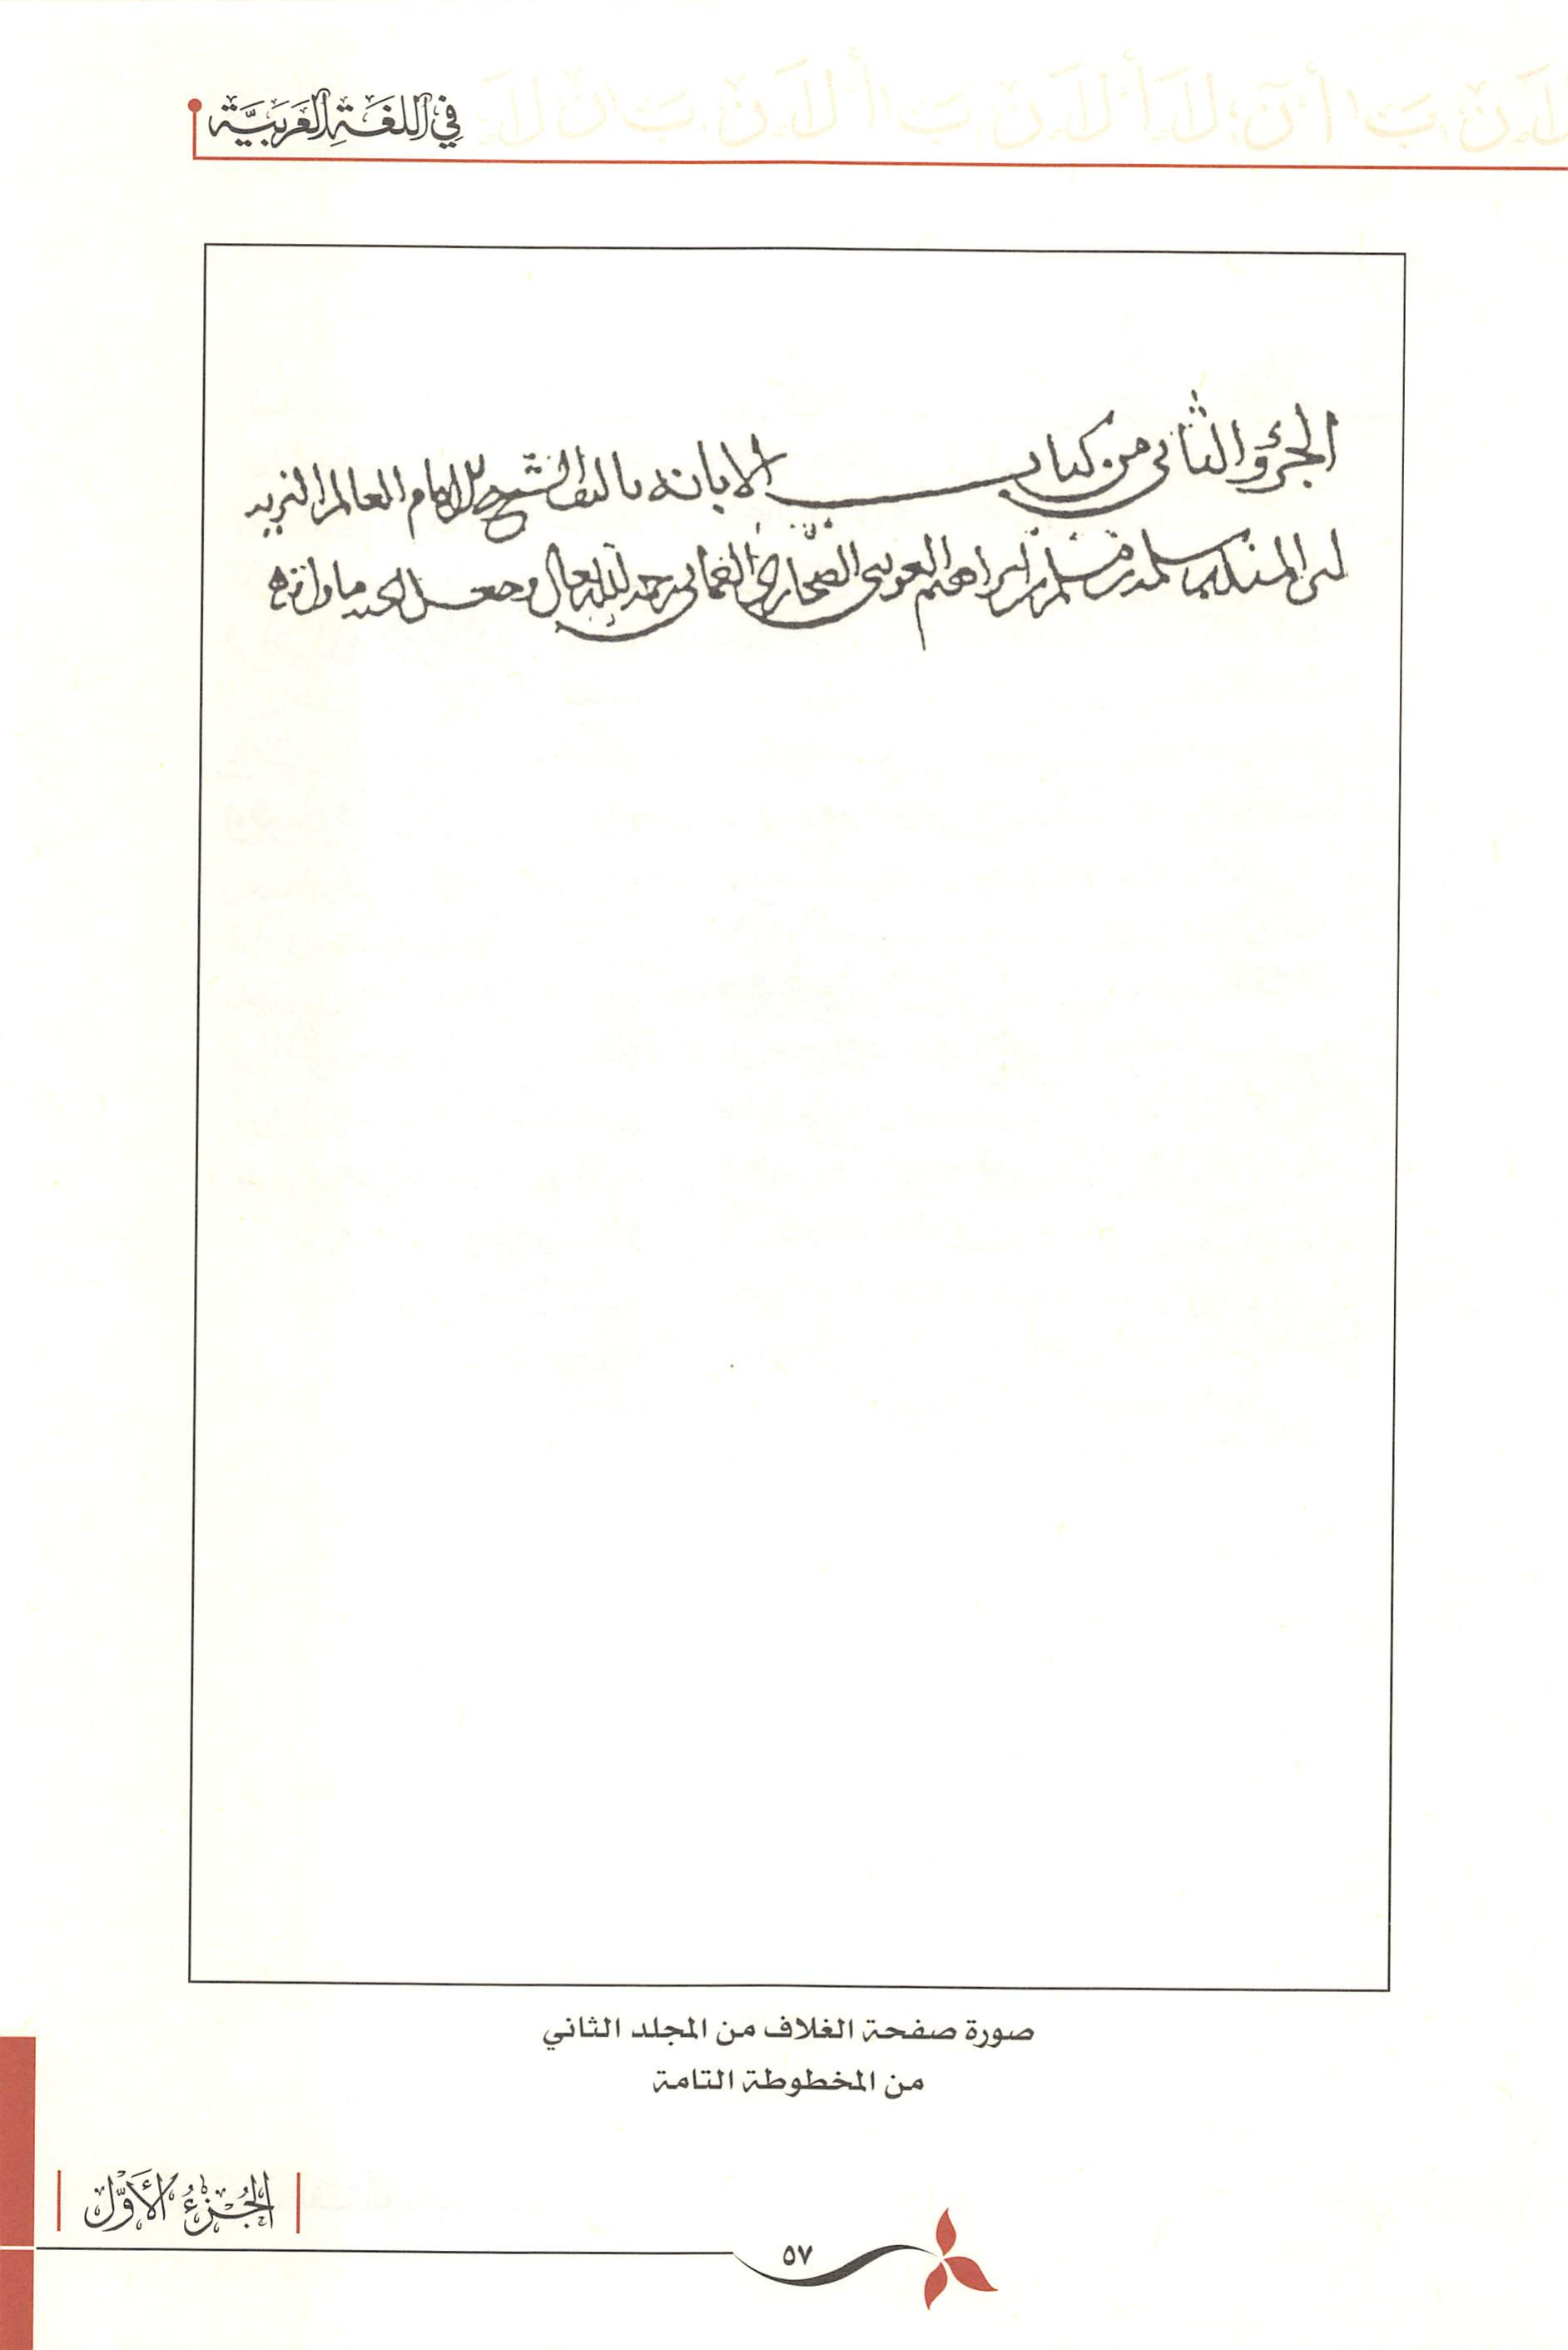 في اللغة العربية
الجزؤ الثاني من كتاب الابانه تاليف الشيخ الامام العالم النزيه
ابي المنذر سلمة بن مسلم بن ابراهيم العوتبي الصحاري العماني رحمه الله تعالى وجعل الجنه ماواه
صورة صفحة الغلاف من المجلد الثاني
من المخطوطة التامة
الجُزءُ الأَوَّل
٥٧